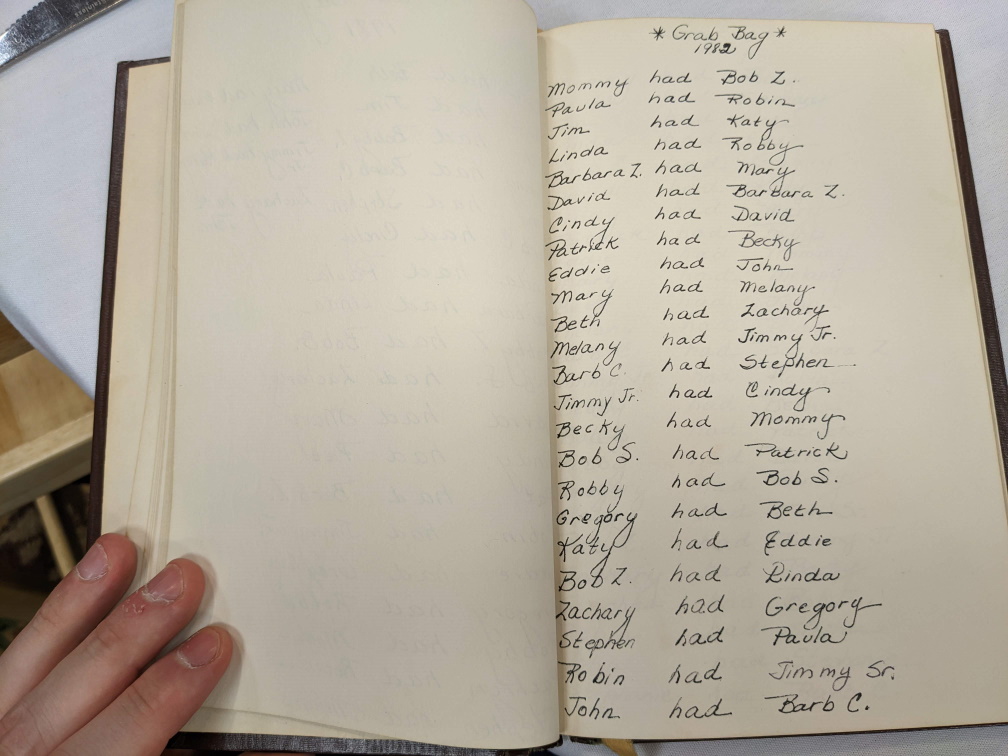 * Grab Bag *
1982
Mommy had Bob Z.
Paula had Robin
Jim had Katy
Linda had Robby
Barbara Z. had Mary
David had Barbara Z.
Cindy had David
Patrick had Becky
Eddie had John
Mary had Melany
Beth had Zachary
Melany had Jimmy Jr.
Barb C. had Stephen
Jimmy Jr. had Cindy
Becky had Mommy
Bob S. had Patrick
Robby had Bob S.
Gregory had Beth
Katy had Eddie
Bob Z. had Linda
Zachary had Gregory
Stephen had Paula
Robin had Jimmy Sr.
John had Barb C.